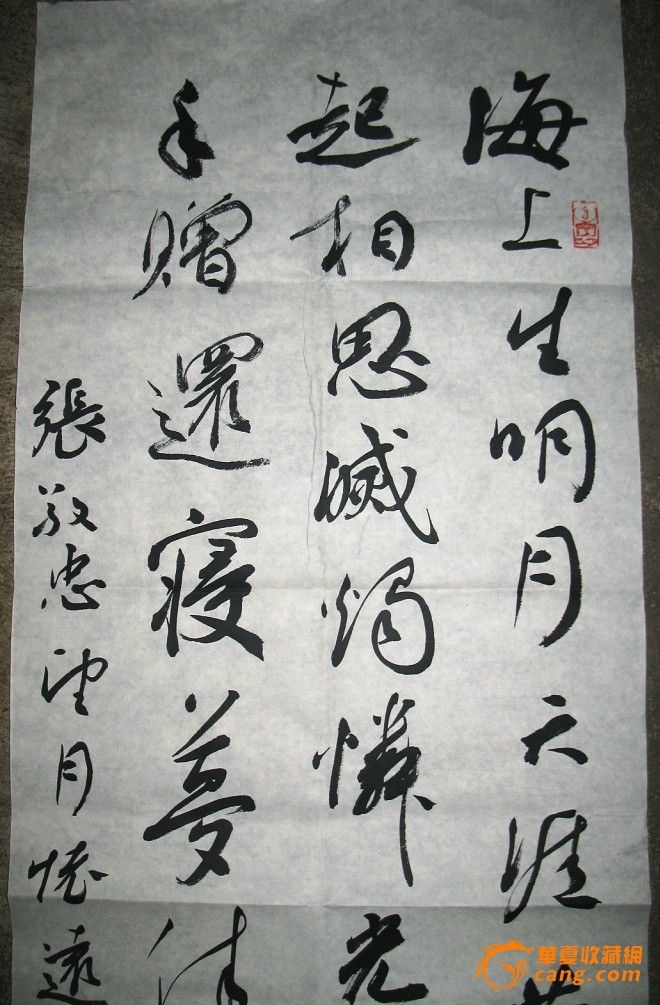 海上生明月天涯共
起相思滅燭憐光
手贈還寢夢佳
張敬忠望月懷遠
華夏收藏網
cang.com